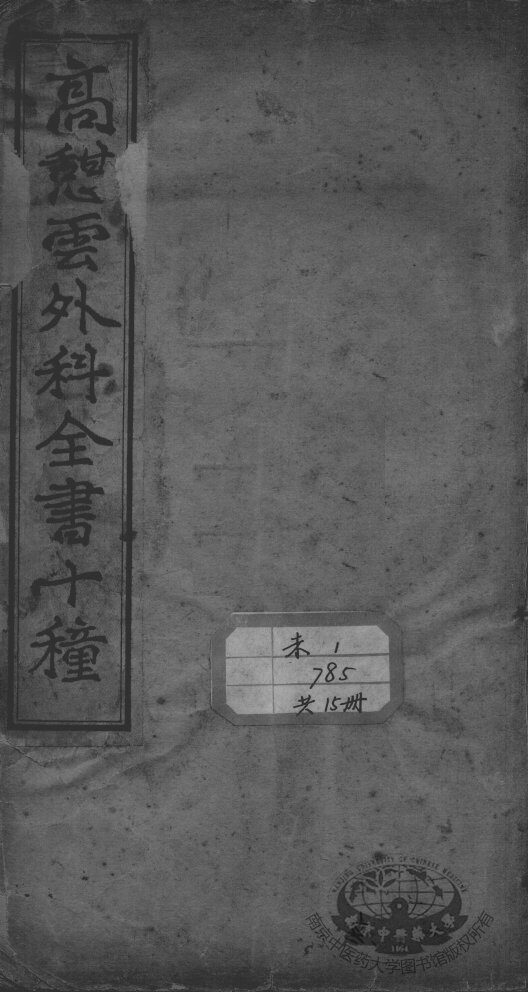 高憇雲外科全書十種
未 1
785
共15冊
NANJING UNIVERSITY OF CHINESE MEDICINE
南京中醫藥大學
1954
南京中医药大学图书馆版权所有